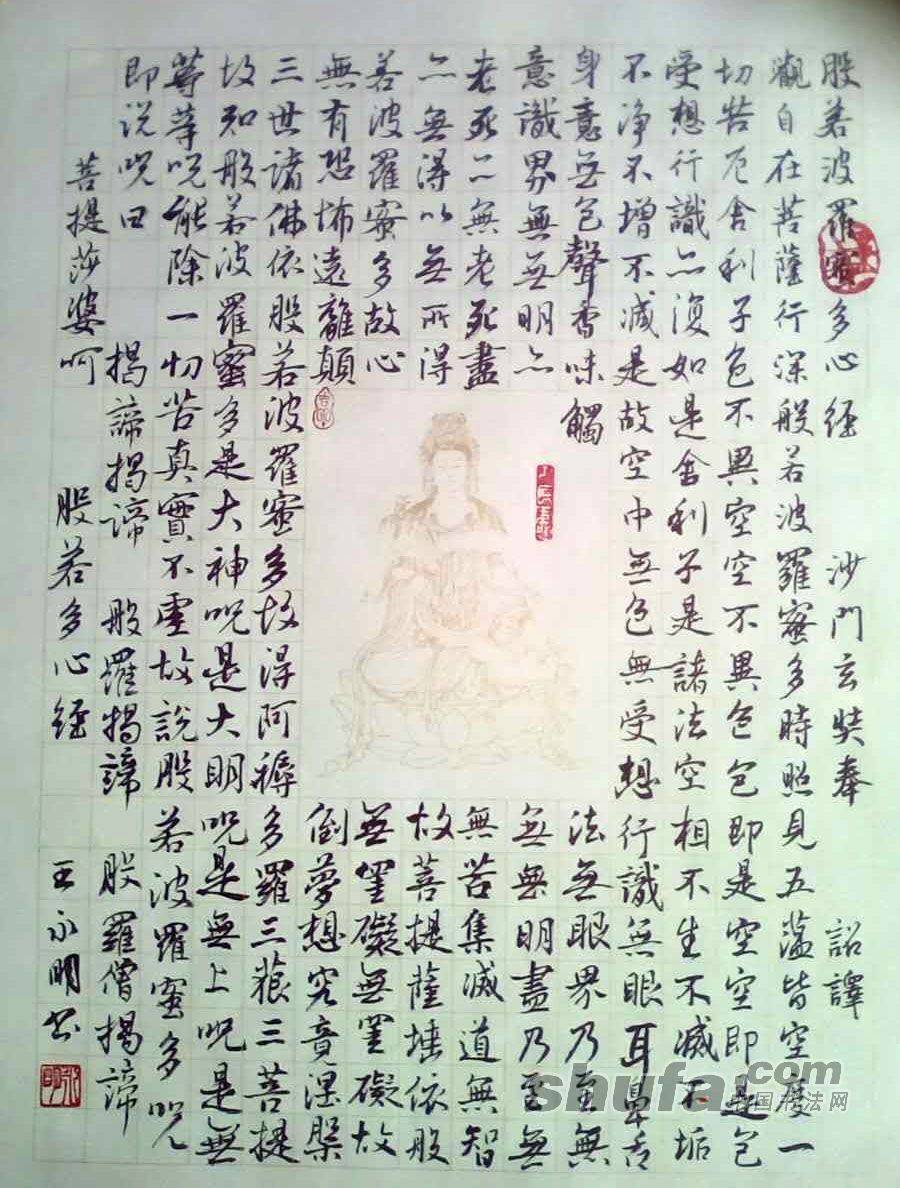 般若波羅蜜多心經 沙門玄奘奉 詔譯
觀自在菩薩行深般若波羅蜜多時照見五蘊皆空度一
切苦厄舍利子色不異空空不異色色即是空空即是色
受想行識亦復如是舍利子是諸法空相不生不滅不垢
不净不增不減是故空中無色無受想行識無眼耳鼻舌
身意无色聲香味觸 法無眼界乃至無
意識界無無明亦 無無明盡乃至無
老死亦無老死盡 無苦集滅道無智
亦無得以無所得 故菩提薩埵依般
若波羅蜜多故心 無罣礙無罣礙故
無有恐怖遠離顛 倒夢想究竟涅槃
三世諸佛依般若波羅蜜多故得阿耨多羅三藐三菩提
故知般若波羅蜜多是大神呪是大明呪是無上呪是無
等等呪能除一切苦真實不虛故說般若波羅蜜多呪
即说呪曰 揭諦揭諦 般羅揭諦 般羅僧揭諦
菩提莎婆呵 般若多心經 王永明书
shufa.com
中国书法网